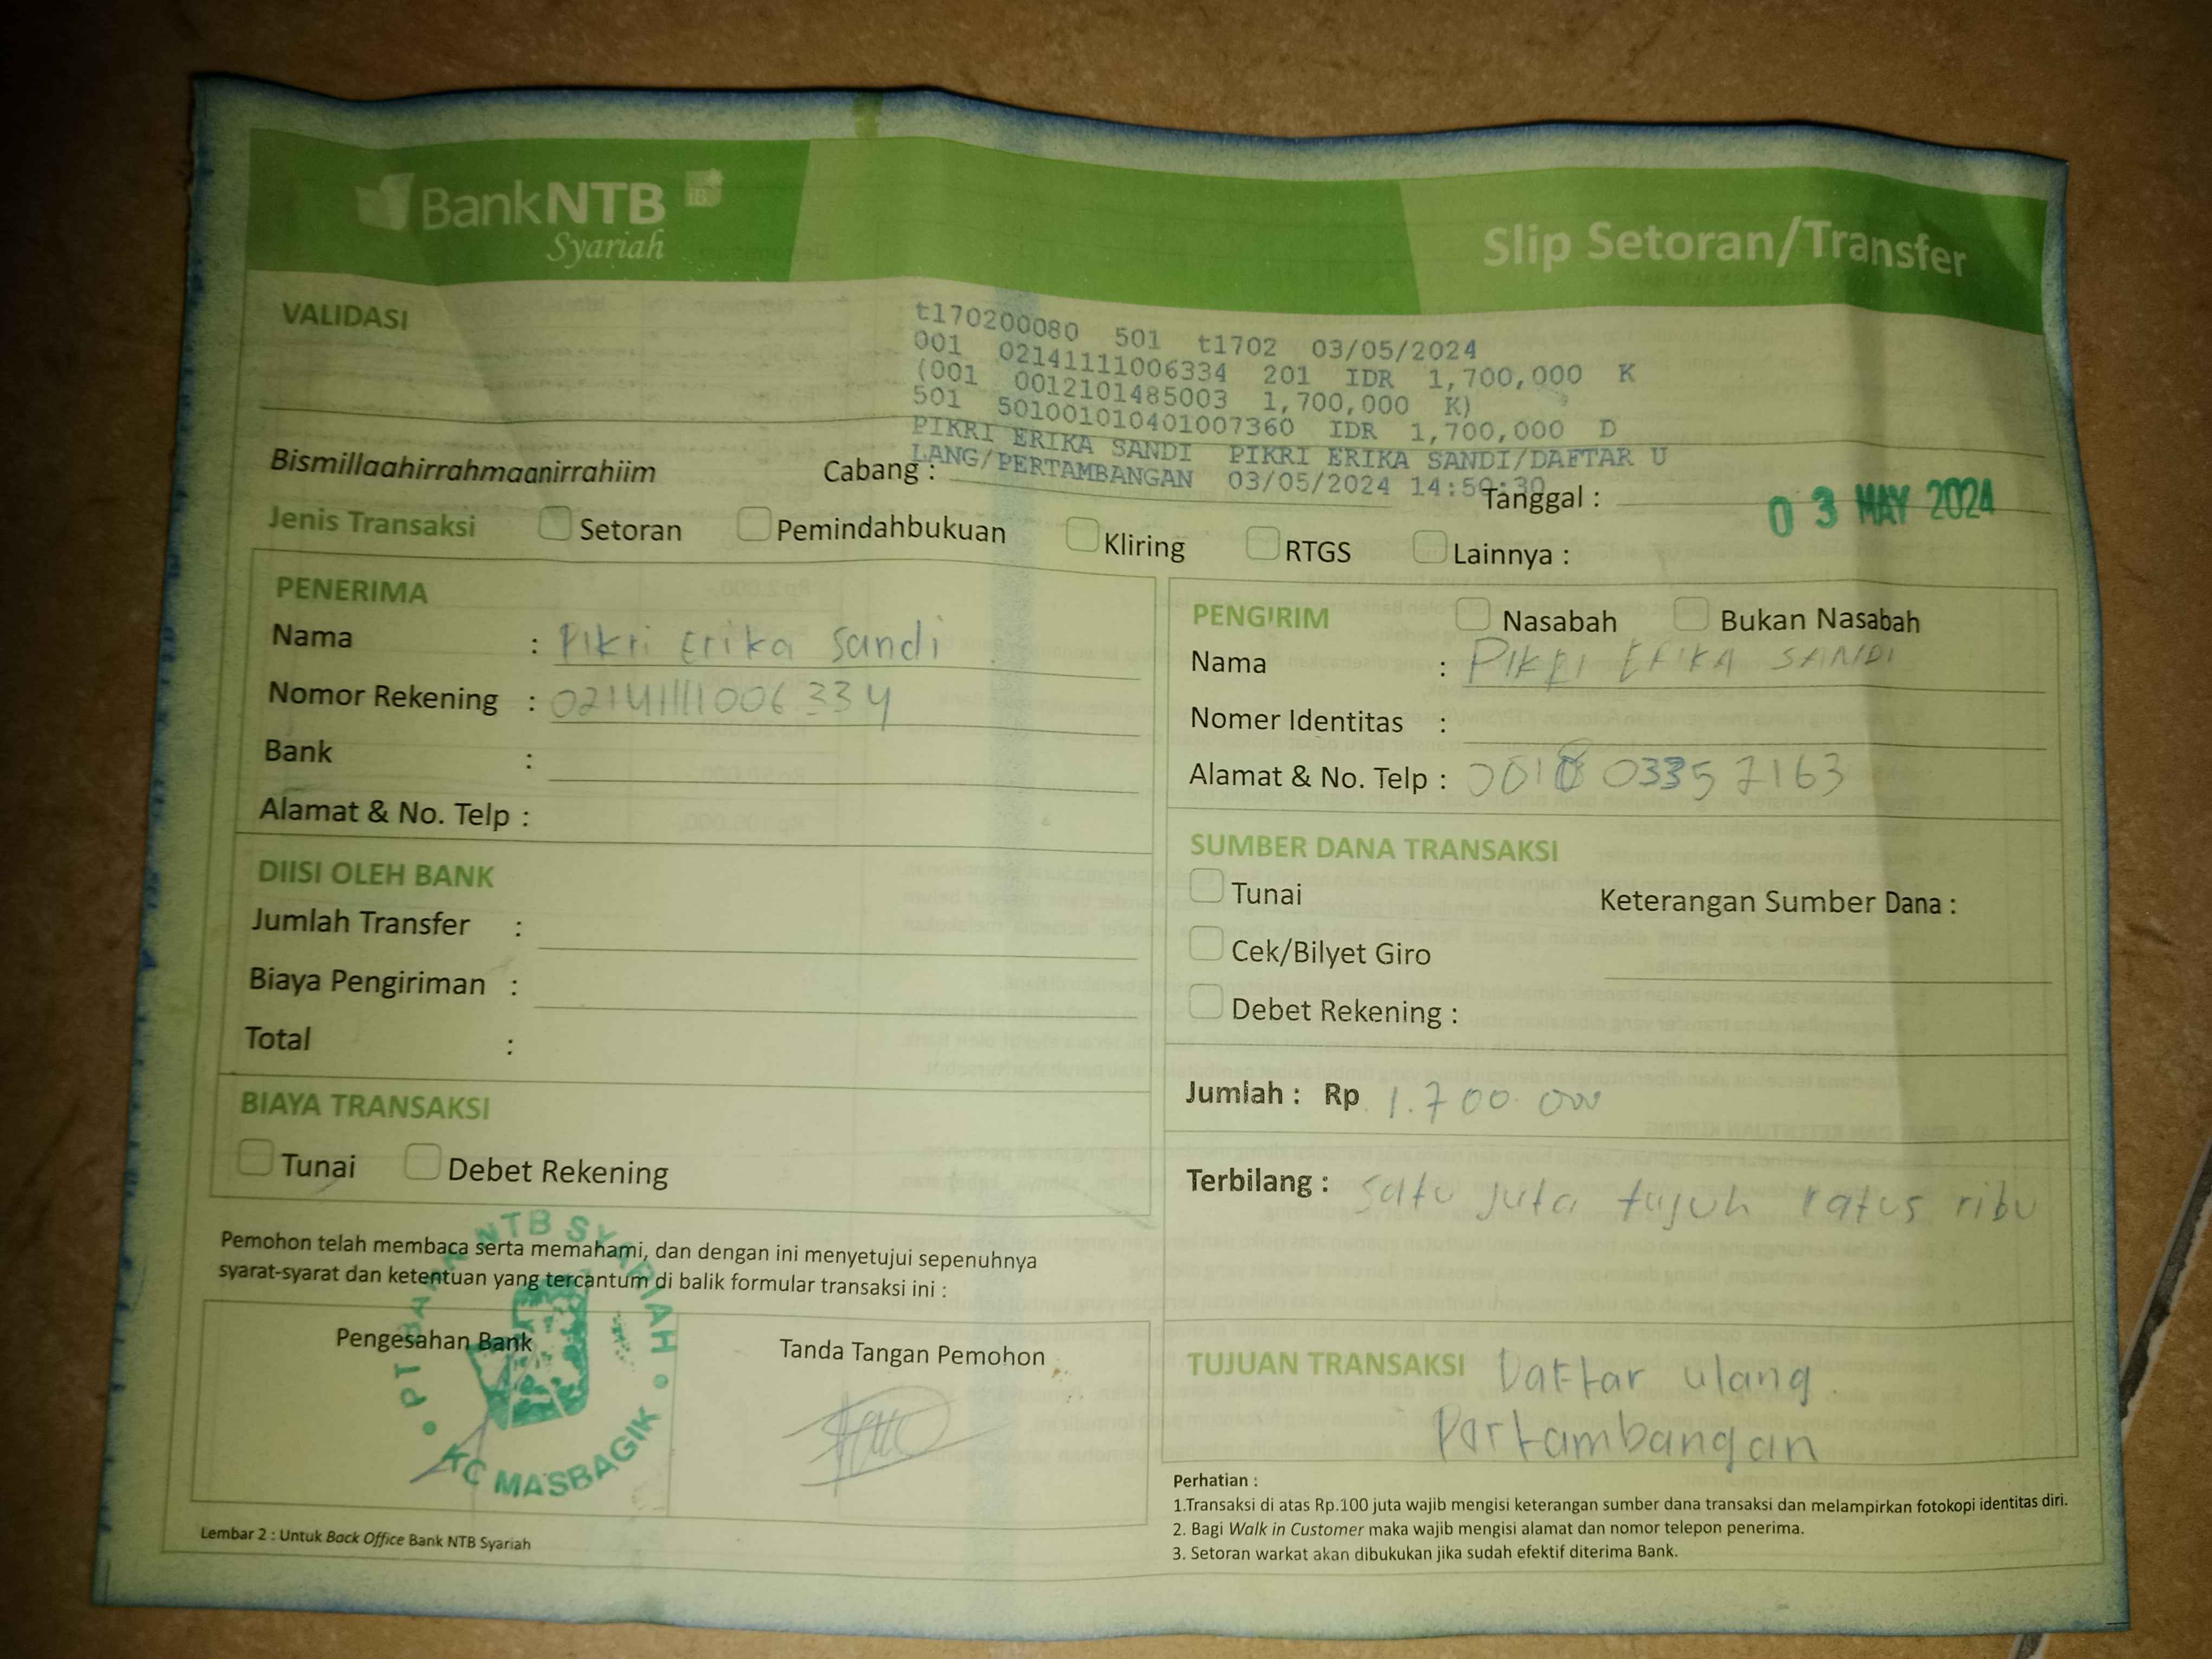 BankNTB iB
Syariah
Slip Setoran/Transfer
VALIDASI
t170200080 501 t1702 03/05/2024
001 02141111006334 201 IDR 1,700,000 K
(001 0012101485003 1,700,000 K)
501 501001010401007360 IDR 1,700,000 D
PIKRI ERIKA SANDI PIKRI ERIKA SANDI/DAFTAR U
LANG/PERTAMBANGAN 03/05/2024 14:59:30
Bismillaahirrahmaanirrahiim
Cabang :
Tanggal : 03 MAY 2024
Jenis Transaksi Setoran Pemindahbukuan Kliring RTGS Lainnya :
PENERIMA
Nama : Pikri Erika Sandi
Nomor Rekening : 02141111006334
Bank :
Alamat & No. Telp :
DIISI OLEH BANK
Jumlah Transfer :
Biaya Pengiriman :
Total :
BIAYA TRANSAKSI
Tunai Debet Rekening
PENGIRIM Nasabah Bukan Nasabah
Nama : PIKRI ERIKA SANDI
Nomer Identitas :
Alamat & No. Telp :
SUMBER DANA TRANSAKSI
Tunai Keterangan Sumber Dana :
Cek/Bilyet Giro
Debet Rekening :
Jumlah : Rp 1.700.000
Terbilang : satu juta tujuh ratus ribu
TUJUAN TRANSAKSI Daftar ulang
Partambangan
Pemohon telah membaca serta memahami, dan dengan ini menyetujui sepenuhnya
syarat-syarat dan ketentuan yang tercantum di balik formular transaksi ini :
Pengesahan Bank
Tanda Tangan Pemohon
PT BANK NTB SYARIAH
KC MASBAGIK
Lembar 2 : Untuk Back Office Bank NTB Syariah
Perhatian :
1.Transaksi di atas Rp.100 juta wajib mengisi keterangan sumber dana transaksi dan melampirkan fotokopi identitas diri.
2. Bagi Walk in Customer maka wajib mengisi alamat dan nomor telepon penerima.
3. Setoran warkat akan dibukukan jika sudah efektif diterima Bank.